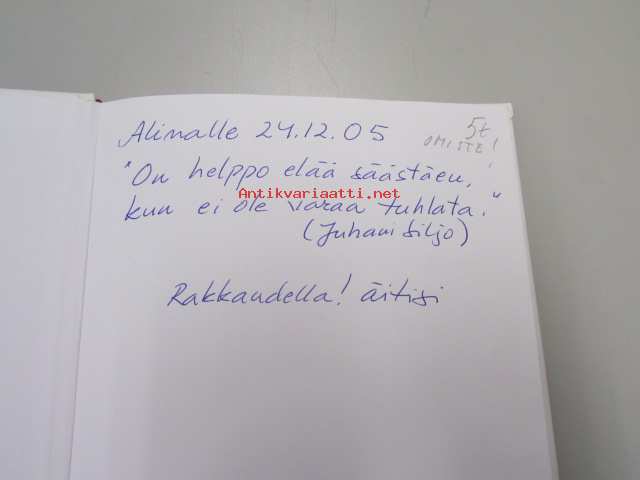 Alinalle 24.12.05
5€
OMISTE!
"On helppo elää säästäen,
Antikvariaatti.net
kun ei ole varaa tuhlata."
(Juhani Siljo)
Rakkaudella! äitisi